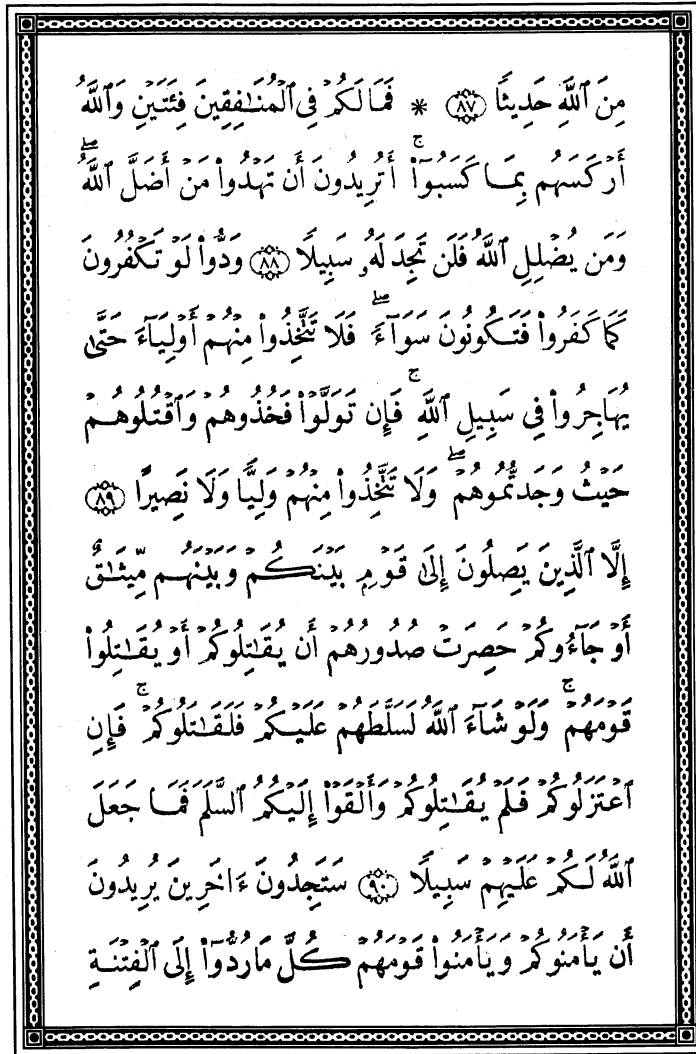 مِنَ ٱللَّهِ حَدِيثًا ٨٧ * فَمَا لَكُمْ فِى ٱلْمُنَٰفِقِينَ فِئَتَيْنِ وَٱللَّهُ
أَرْكَسَهُم بِمَا كَسَبُوٓا۟ ۚ أَتُرِيدُونَ أَن تَهْدُوا۟ مَنْ أَضَلَّ ٱللَّهُ ۖ
وَمَن يُضْلِلِ ٱللَّهُ فَلَن تَجِدَ لَهُۥ سَبِيلًا ٨٨ وَدُّوا۟ لَوْ تَكْفُرُونَ
كَمَا كَفَرُوا۟ فَتَكُونُونَ سَوَآءً ۖ فَلَا تَتَّخِذُوا۟ مِنْهُمْ أَوْلِيَآءَ حَتَّىٰ
يُهَاجِرُوا۟ فِى سَبِيلِ ٱللَّهِ ۚ فَإِن تَوَلَّوْا۟ فَخُذُوهُمْ وَٱقْتُلُوهُمْ
حَيْثُ وَجَدتُّمُوهُمْ ۖ وَلَا تَتَّخِذُوا۟ مِنْهُمْ وَلِيًّا وَلَا نَصِيرًا ٨٩
إِلَّا ٱلَّذِينَ يَصِلُونَ إِلَىٰ قَوْمٍۭ بَيْنَكُمْ وَبَيْنَهُم مِّيثَٰقٌ
أَوْ جَآءُوكُمْ حَصِرَتْ صُدُورُهُمْ أَن يُقَٰتِلُوكُمْ أَوْ يُقَٰتِلُوا۟
قَوْمَهُمْ ۚ وَلَوْ شَآءَ ٱللَّهُ لَسَلَّطَهُمْ عَلَيْكُمْ فَلَقَٰتَلُوكُمْ ۚ فَإِنِ
ٱعْتَزَلُوكُمْ فَلَمْ يُقَٰتِلُوكُمْ وَأَلْقَوْا۟ إِلَيْكُمُ ٱلسَّلَمَ فَمَا جَعَلَ
ٱللَّهُ لَكُمْ عَلَيْهِمْ سَبِيلًا ٩٠ سَتَجِدُونَ ءَاخَرِينَ يُرِيدُونَ
أَن يَأْمَنُوكُمْ وَيَأْمَنُوا۟ قَوْمَهُمْ كُلَّ مَا رُدُّوٓا۟ إِلَى ٱلْفِتْنَةِ